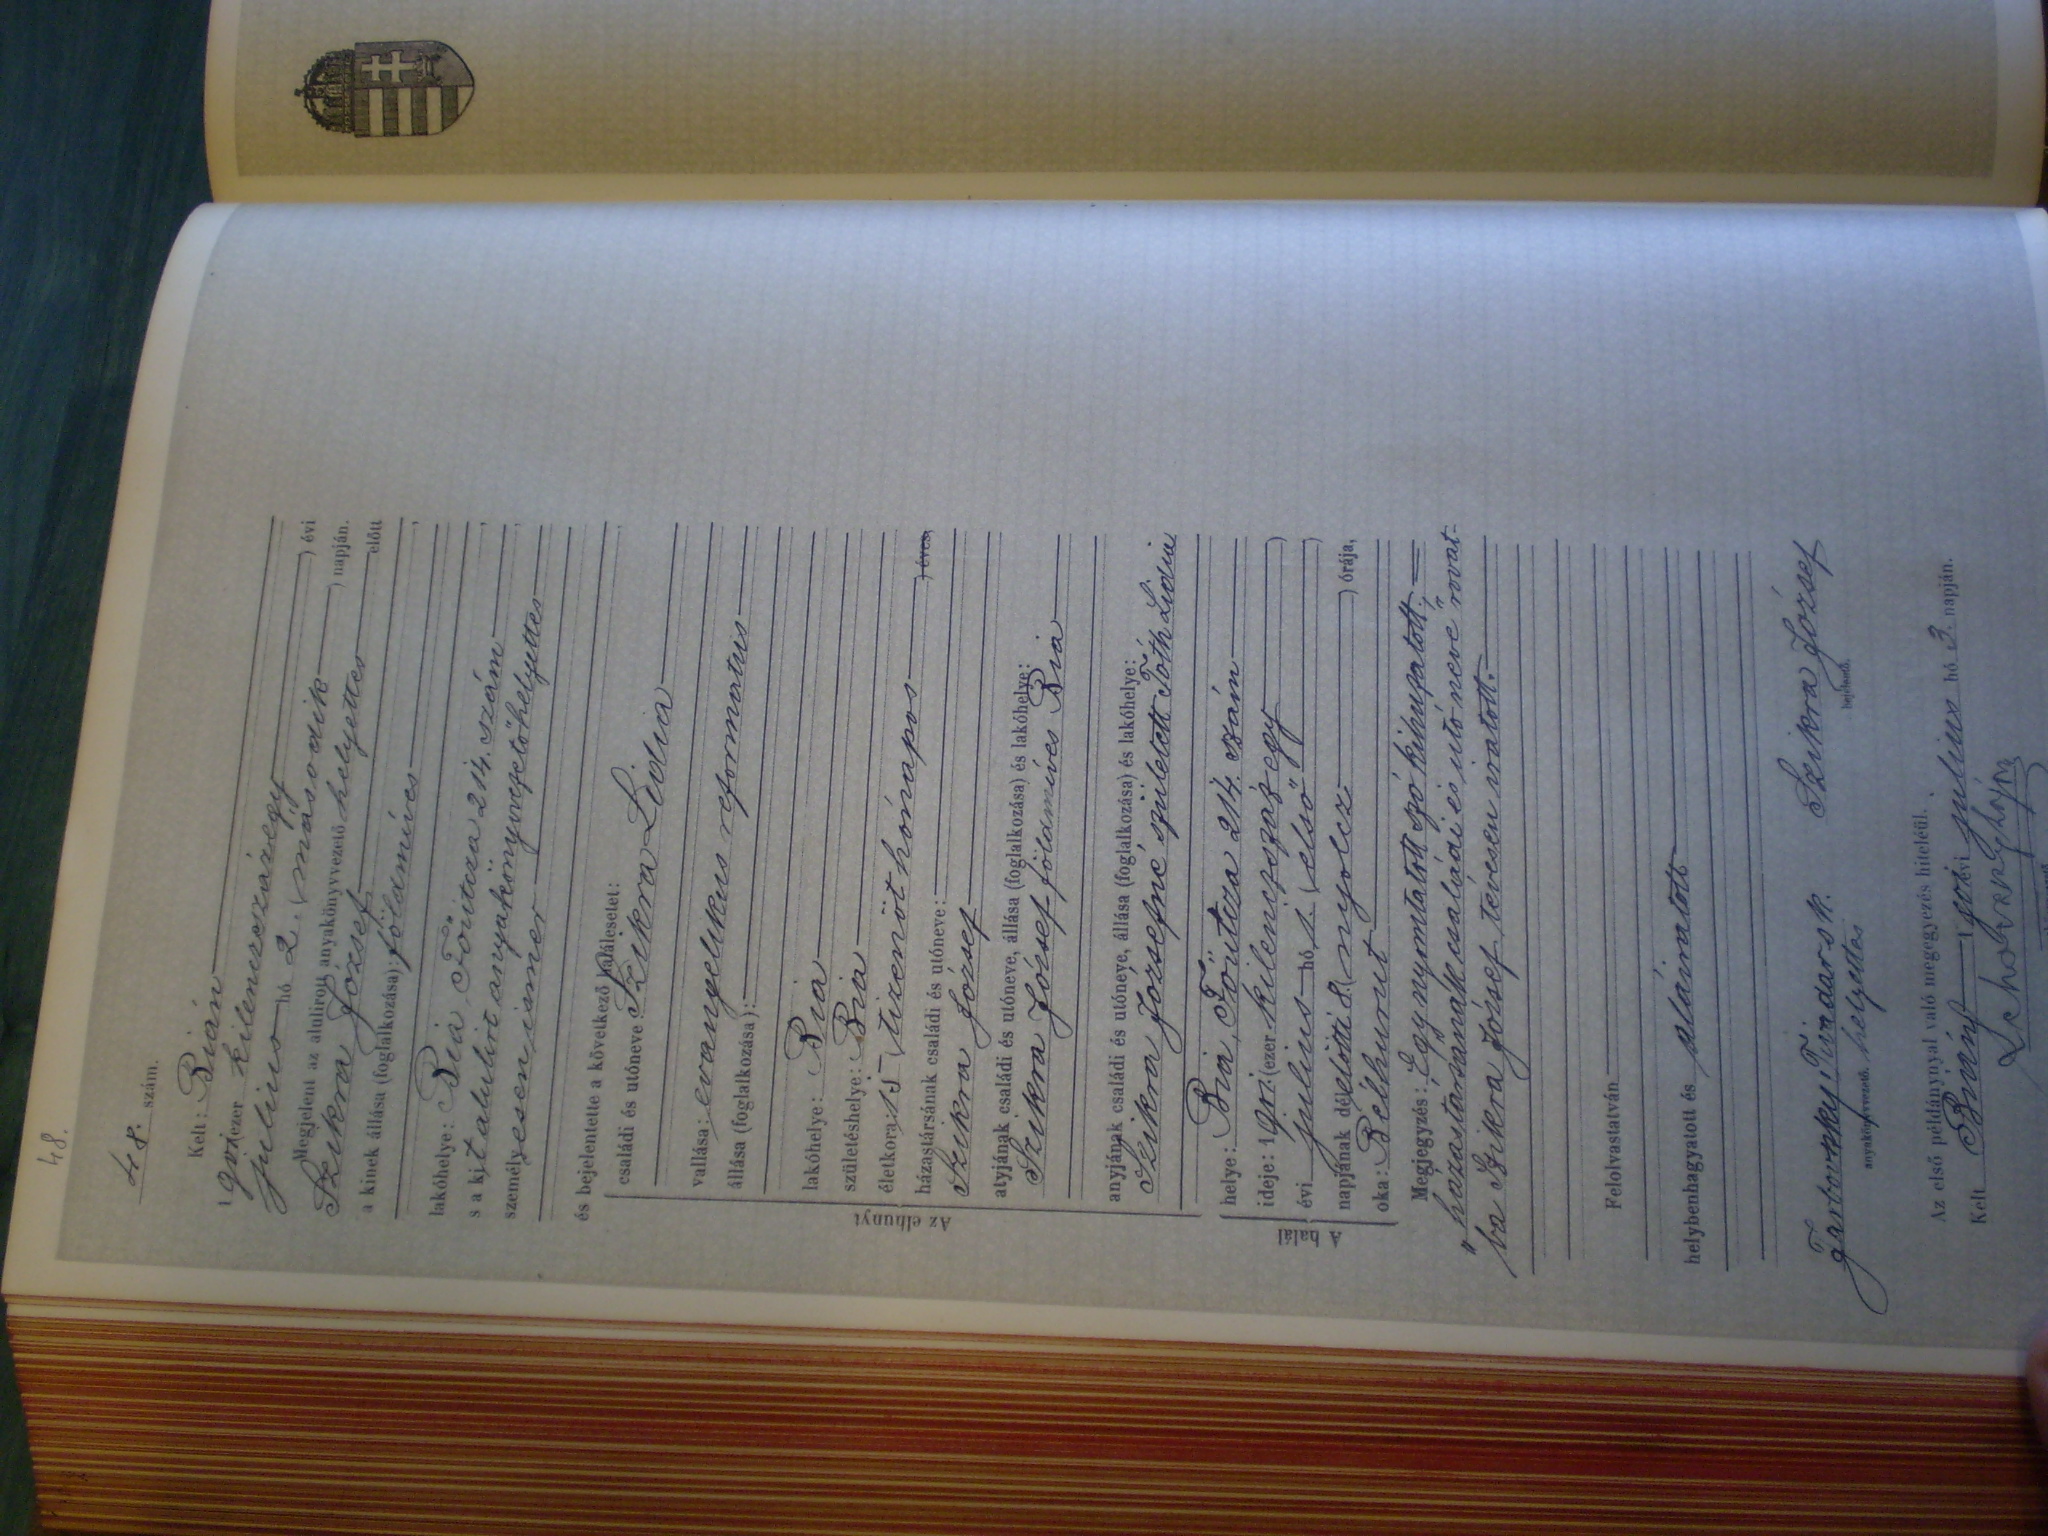 48.
48. szám.
Kelt: Bián
1901 (ezer kilenczszázegy ) évi
julius hó 2. (második ) napján.
Megjelent az alulirott anyakönyvvezető helyettes előtt
Szikra József
a kinek állása (foglalkozása): földmíves
lakóhelye: Bia, Főútcza 214. szám
s a kit alulirt anyakönyvvezetőhelyettes
személyesen ismer
és bejelentette a következő halálesetet:
Az elhunyt
családi és utóneve Szikra Lidia
vallása: evangelikus reformatus
állása (foglalkozása):
lakóhelye: Bia
születéshelye: Bia
életkora: 15 (tizenöt hónapos ) éves,
házastársának családi és utóneve:
Szikra József
atyjának családi és utóneve, állása (foglalkozása) és lakóhelye:
Szikra József földmíves Bia
anyjának családi és utóneve, állása (foglalkozása) és lakóhelye:
Szikra Józsefné született Tóth Lidia
A halál
helye: Bia, Főútcza 214. szám
ideje: 1901. (ezer kilenczszáz egy )
évi julius hó 1. (első )
napjának délelőtti 8. (nyolcz ) órája,
oka: Bélhurut
Megjegyzés: Egy nyomtatott szó kihuzatott.
"házastársának családi és utóneve" rovat-
ba Szikra József tévesen iratott.
Felolvastatván
helybenhagyatott és aláiratott
Tivadar s k. Szikra József
anyakönyvvezető. helyettes bejelentő.
Az első példánynyal való megegyezés hiteléül.
Kelt Bián 1901 évi julius hó 3. napján.